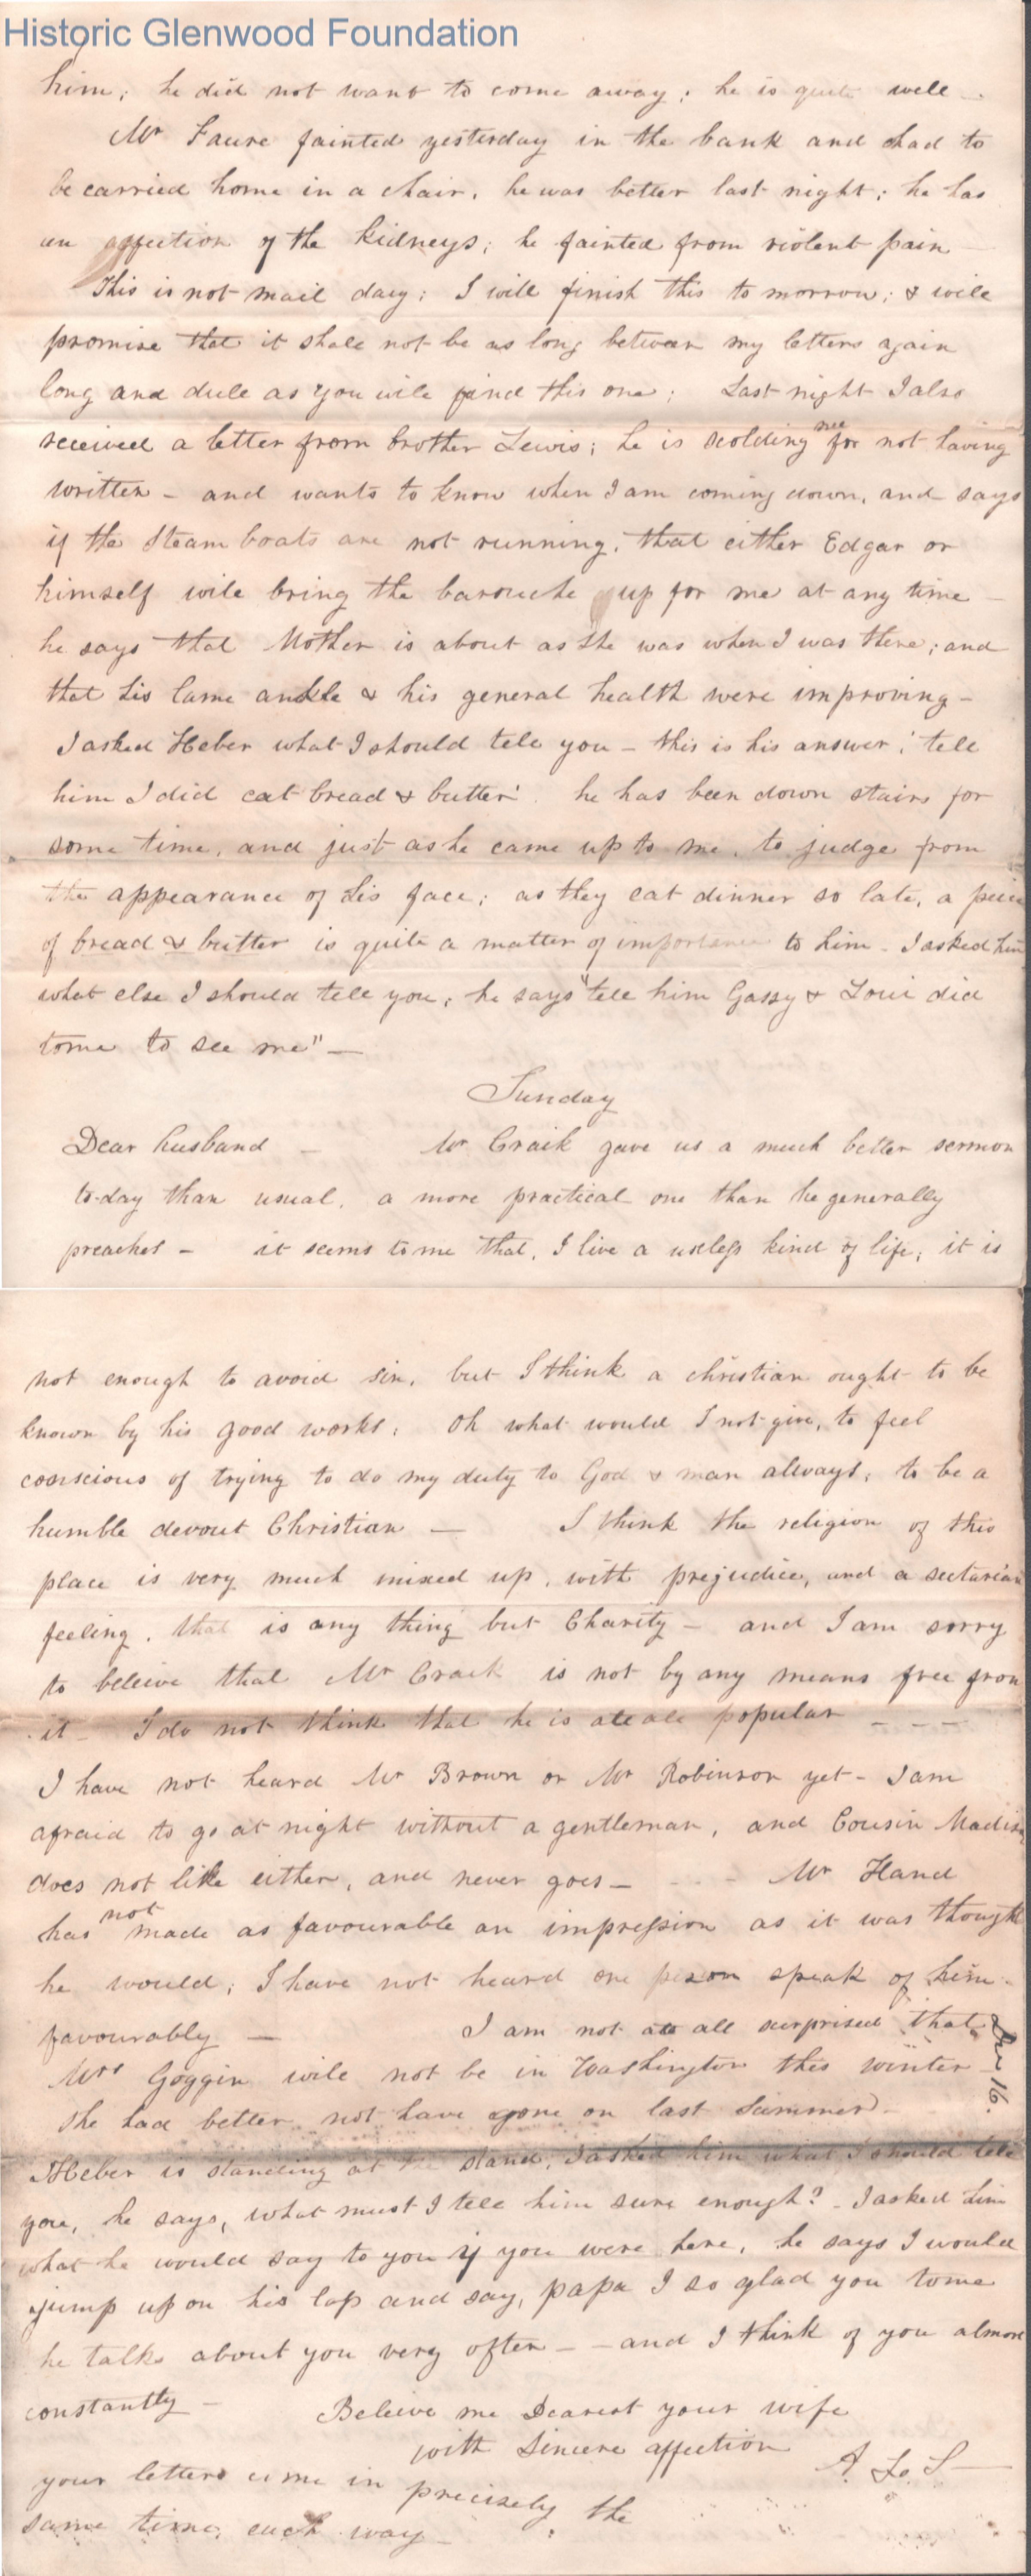 Historic Glenwood Foundation
him; he did not want to come away; he is quite well -
Mr Faure fainted yesterday in the bank and had to
be carried home in a chair, he was better last night; he has
an affection of the kidneys; he fainted from violent pain -
This is not mail day; I will finish this to morrow; & will
promise that it shall not be as long between my letters again
long and dull as you will find this one; Last night I also
received a letter from brother Lewis; he is scolding me for not having
written - and wants to know when I am coming down, and says
if the Steam boats are not running, that either Edgar or
himself will bring the barouche up for me at any time -
he says that Mother is about as she was when I was there; and
that his lame ankle & his general health were improving -
I asked Heber what I should tell you - this is his answer; 'tell
him I did eat bread & butter'. he has been down stairs for
some time, and just as he came up to me, to judge from
the appearance of his face; as they eat dinner so late, a peice
of bread & butter is quite a matter of importance to him - I asked him
what else I should tell you; he says "tell him Gassy & Loui did
tome to see me" -
Sunday
Dear husband - Mr Craik gave us a much better sermon
to-day than usual, a more practical one than he generally
preaches - it seems to me that, I live a useless kind of life; it is
not enough to avoid sin, but I think a christian ought to be
known by his good works; Oh what would I not give, to feel
conscious of trying to do my duty to God & man always; to be a
humble devout Christian - I think the religion of this
place is very much mixed up, with prejudice, and a sectarian
feeling, that is any thing but Charity - and I am sorry
to beleive that Mr Craik is not by any means free from
it - I do not think that he is at all popular - - -
I have not heard Mr Brown or Mr Robinson yet - I am
afraid to go at night without a gentleman, and Cousin Madison
does not like either, and never goes - - - - Mr Hand
has not made as favourable an impression as it was thought
he would; I have not heard one person speak of him
favourably - I am not at all surprised that
Mrs Goggin will not be in Washington this winter -
Dec 16.
She had better not have gone on last Summer -
Heber is standing at the stand, I asked him what I should tell
you, he says, what must I tell him sure enough? - I asked him
what he would say to you if you were here, he says I would
jump up on his lap and say, papa I so glad you tome
he talks about you very often - - and I think of you almost
constantly - Beleive me Dearest your wife
with Sincere affection A. L. S -
your letters come in precisely the
same time, each way -